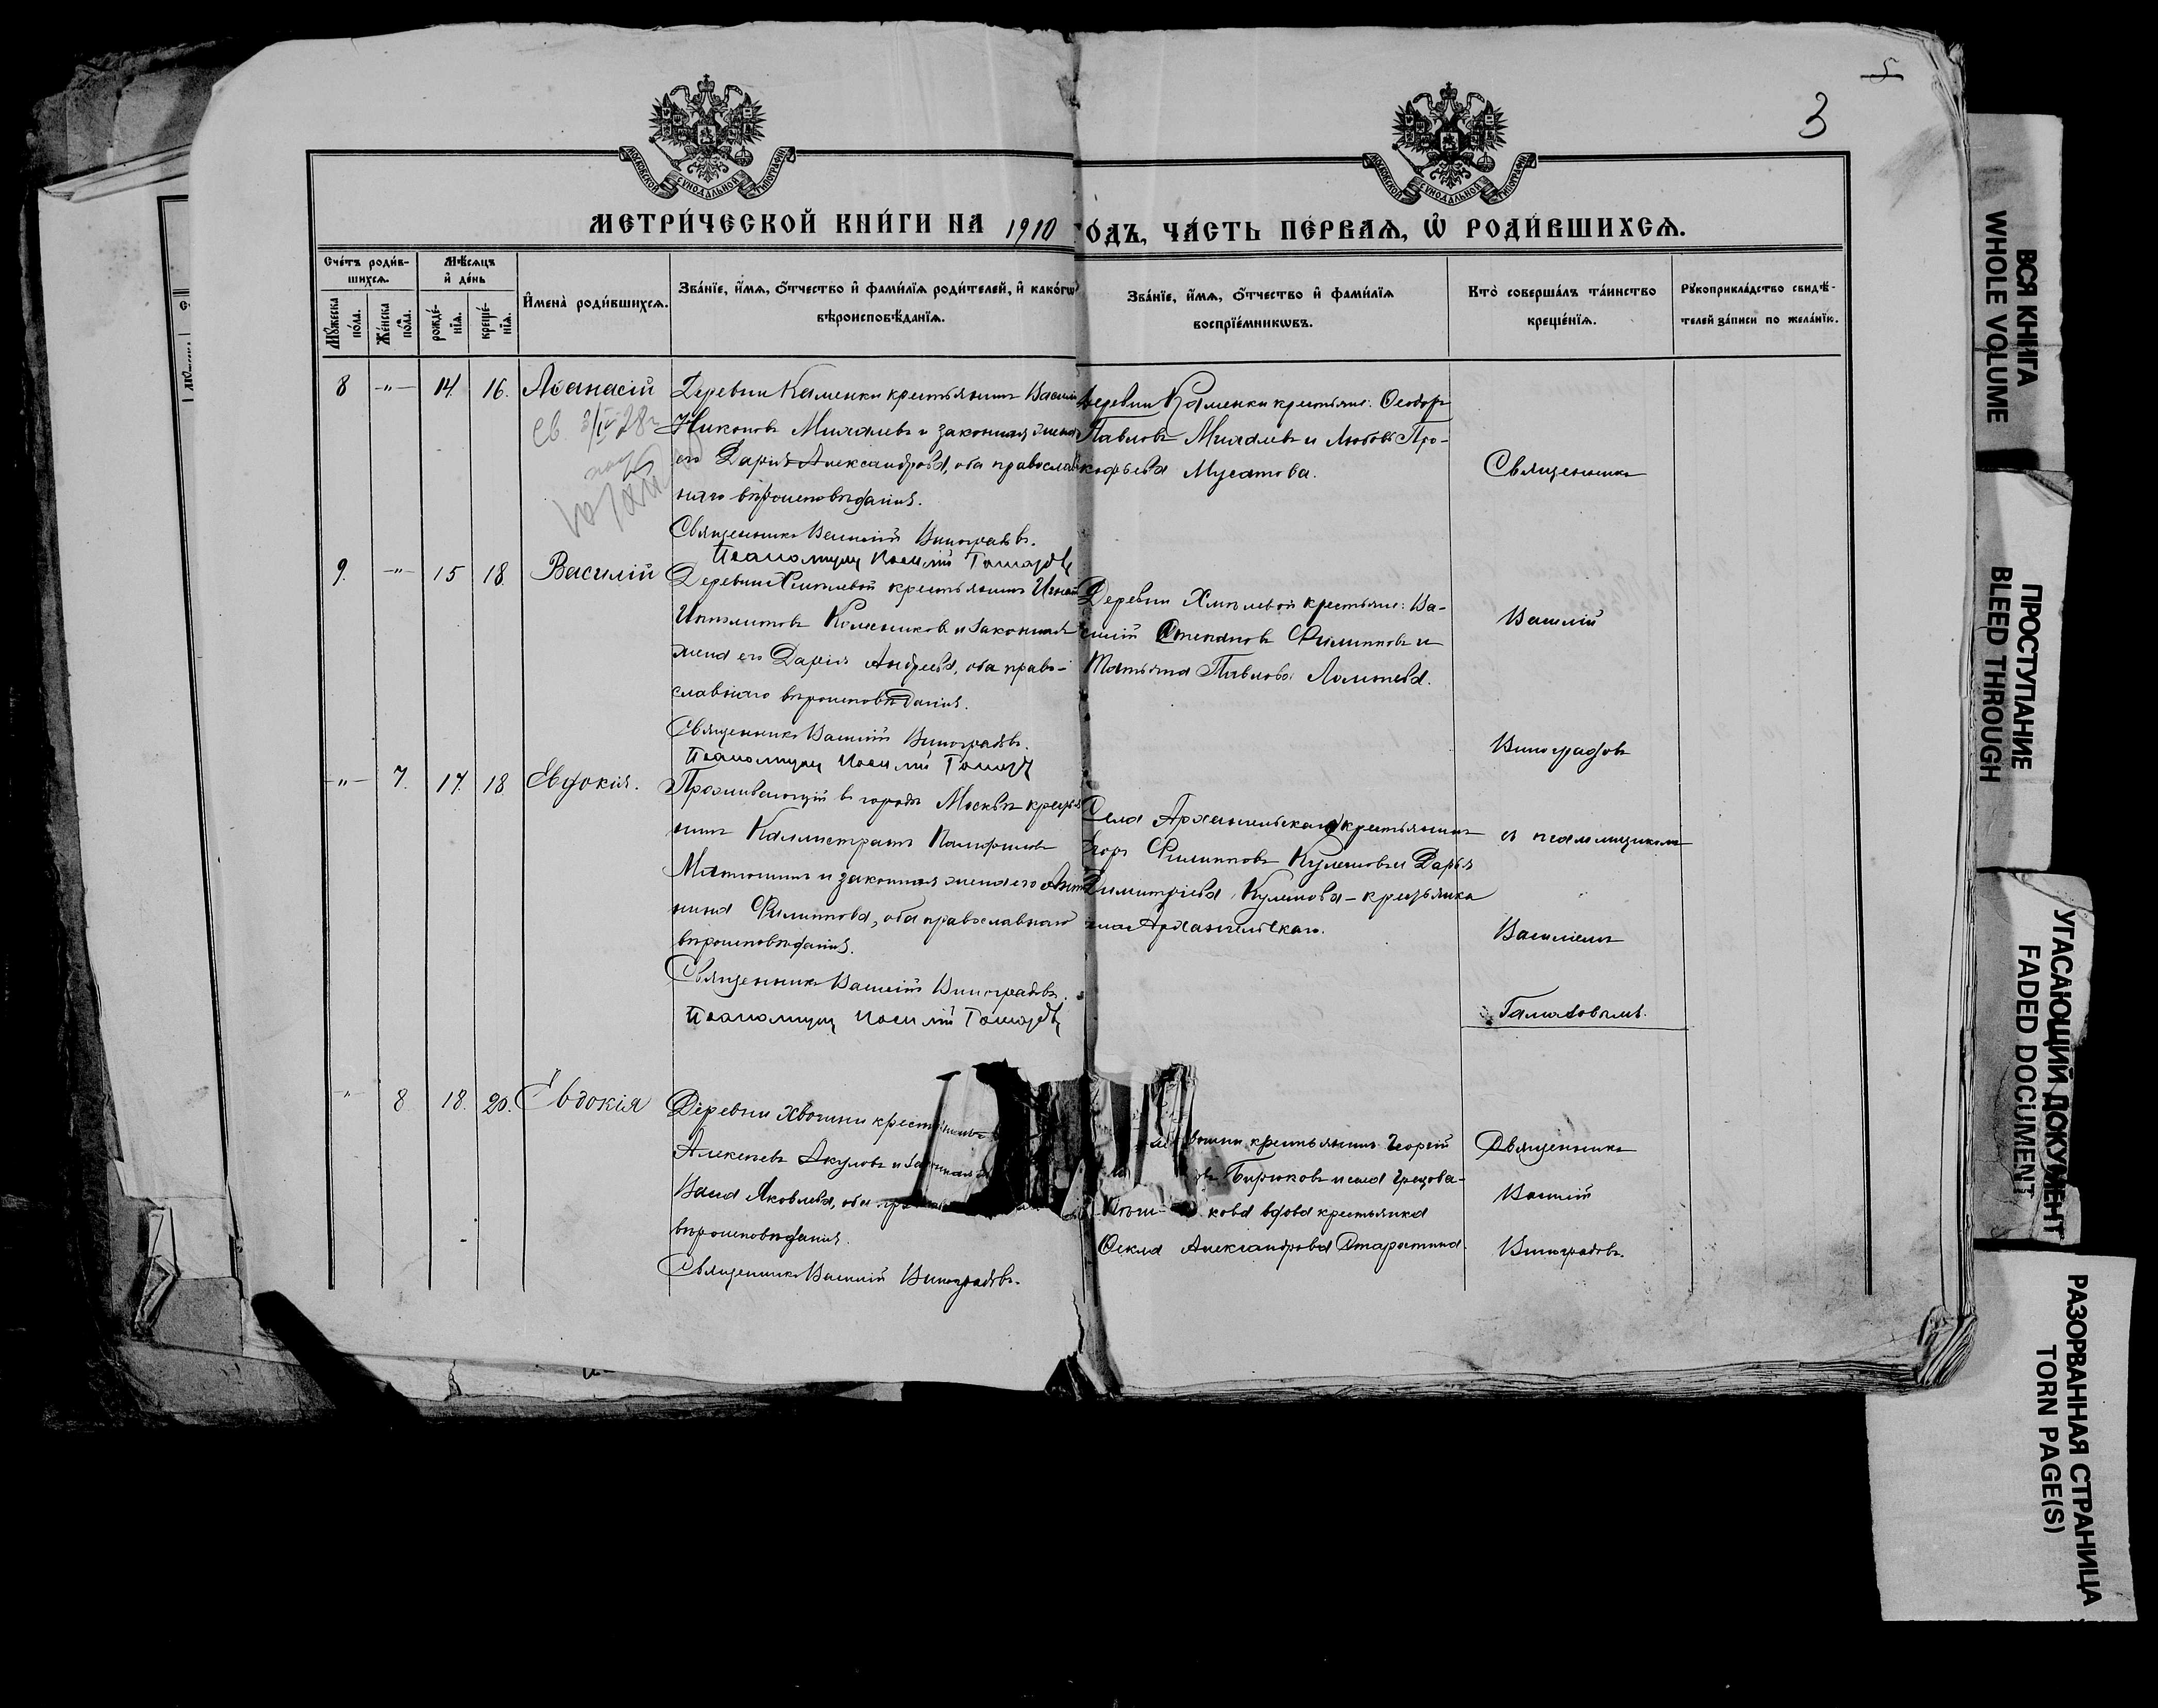 5
3
МОСКОВСКОЙ СѴНОДАЛЬНОЙ ТИПОГРАФІИ
МОСКОВСКОЙ СѴНОДАЛЬНОЙ ТИПОГРАФІИ
МЕТРИ́ЧЕСКОЙ КНИ́ГИ НА 1910 ГО́ДЪ, ЧА́СТЬ ПЕ́РВАѦ, Ѿ РОДИ́ВШИХСѦ.
Сче́тъ роди́в-
шихсѧ.
Мѣсѧцъ
и҆ де́нь
Мꙋжеска
по́ла.
Же́нска
по́ла.
рожде́-
нїѧ.
креще́-
нїѧ.
И҆мена̀ роди́вшихсѧ.
Зва́нїе, и҆́мѧ, ѻ҆́тчество и҆ фами́лїѧ роди́телей, и҆ како́гѡ
вѣроисповѣ́данїѧ.
Зва́нїе, и҆́мѧ, ѻ҆́тчество и҆ фами́лїѧ
воспрїе́мникѡвъ.
Кто̀ соверша́лъ та́инство
креще́нїѧ.
Рꙋкоприкла́дство свидѣ́-
телей за́писи по жела́нїю.
8 -"- 14. 16. Аѳанасій
св. 3/IV-28г.
Деревни Каменки крестьянинъ Васил
Никоновъ Михалевъ и законная жена
его Дарія Александрова, оба православ
наго вѣроисповѣданія.
Священникъ Василій Виноградовъ.
Псаломщикъ Василій
Деревни Каменки крестьяне: Ѳеодоръ
Павловъ Михалевъ и Любовь Про-
кофьева Мусатова.
Священникъ
9. -"- 15 18. Василій
Деревни Хмелевой крестьянинъ Игнат
Ипполитовъ Колесниковъ и законная
жена его Дарія Андреева, оба право-
славнаго вѣроисповѣданія.
Священникъ Василій Виноградовъ.
Псаломщикъ Василій
Деревни Хмелевой крестьяне: Ва-
силій Степановъ Филипповъ и
Татьяна Павлова
Василій
Виноградовъ
-"- 7. 17. 18. Евдокія.
Проживающій въ городѣ Москвѣ кресть
нинъ Каллистратъ Памфиловъ
Матюшинъ и законная жена его Анто
нина Филиппова, оба православнаго
вѣроисповѣданія.
Священникъ Василій Виноградовъ.
Псаломщикъ Василій
Села Архангельскаго крестьянинъ
Егоръ Филипповъ Кулешовъ и Дарья
Димитріева Кулешова - крестьянка
Архангельскаго.
съ псаломщикомъ
Василіемъ
-"- 8 18. 20. Евдокія
Деревни крестьянинъ
Алексѣевъ Акуловъ и законная
Яковлева, оба пра
вѣроисповѣданія.
Священникъ Василій Виноградовъ.
крестьянинъ Георгій
Бирюковъ и села
кова вдова крестьянка
Ѳекла Александрова Старостина.
Священникъ
Василій
Виноградовъ.
ВСЯ КНИГА
WHOLE VOLUME
ПРОСТУПАНИЕ
BLEED THROUGH
УГАСАЮЩИЙ ДОКУМЕНТ
FADED DOCUMENT
РАЗОРВАННАЯ СТРАНИЦА
TORN PAGE(S)